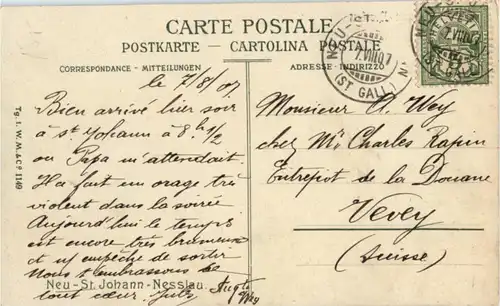 CARTE POSTALE
POSTKARTE - CARTOLINA POSTALE
CORRESPONDANCE - MITTEILUNGEN
ADRESSE - INDIRIZZO
NEU-ST.
7.VIII.07
(ST GALL)
HELVETIA
NEU-ST.
7.VIII.07
(ST GALL)
le 7/8/07.
Bien arrivé hier soir
à St Johann à 8 h 1/2
ou Papa m'attendait.
Il a fait un orage très
violent dans la soirée
Aujourd'hui le temps
est encore très brumeux
et ns empêche de sortir
Nous t'embrassons de
tout cœur.
Neu-St. Johann-Nesslau.
Monsieur A. Wey
chez Mr Charles Rapin
Entrepot de la Douane
Vevey
(Suisse)
Tg. I. W. M. & Co 1149